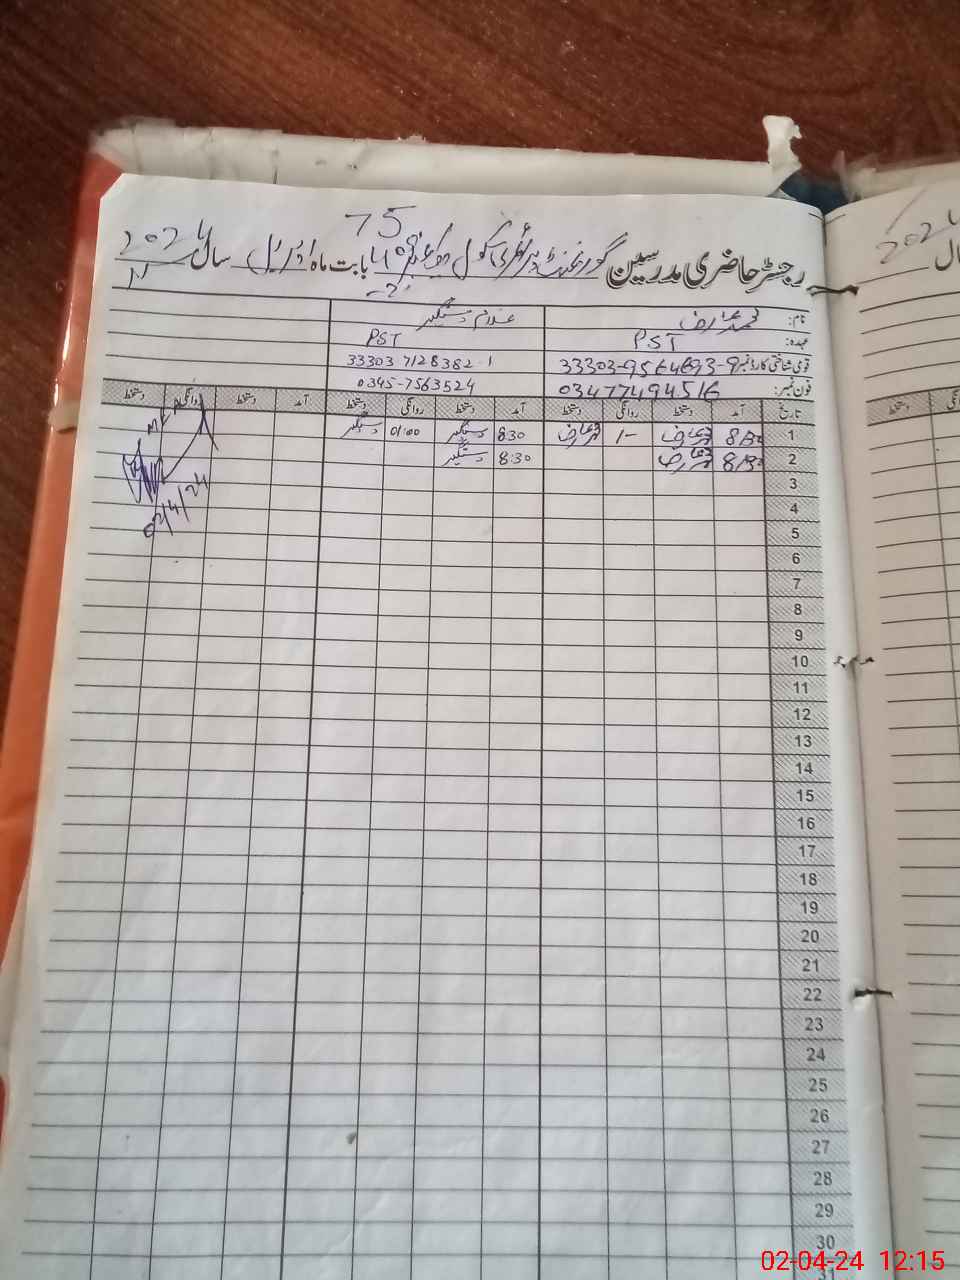 75
رجسٹر حاضری مدرسین گورنمنٹ پرائمری سکول بابت ماہ اپریل سال 2024
نام: محمد عارف غلام دستگیر
عہدہ: PST PST
قومی شناختی کارڈ نمبر 33303-9564693-9 33303 7128382-1
فون نمبر: 03477494516 0345-7563524
تاریخ آمد دستخط روانگی دستخط آمد دستخط روانگی دستخط آمد دستخط روانگی دستخط
1 8/30 محمد عارف 1- محمد عارف 8:30 دستگیر 01:00 دستگیر
2 8/30 محمد عارف 8:30 دستگیر
MEA
02/4/24
3
4
5
6
7
8
9
10
11
12
13
14
15
16
17
18
19
20
21
22
23
24
25
26
27
28
29
30
31
2024
سال
دستخط
02-04-24 12:15